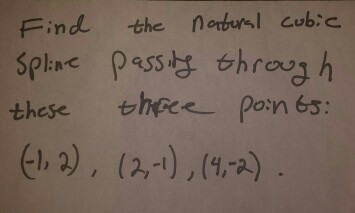 Find the natural cubic
Spline passing through
these three points:
(-1, 2), (2,-1), (4,-2).